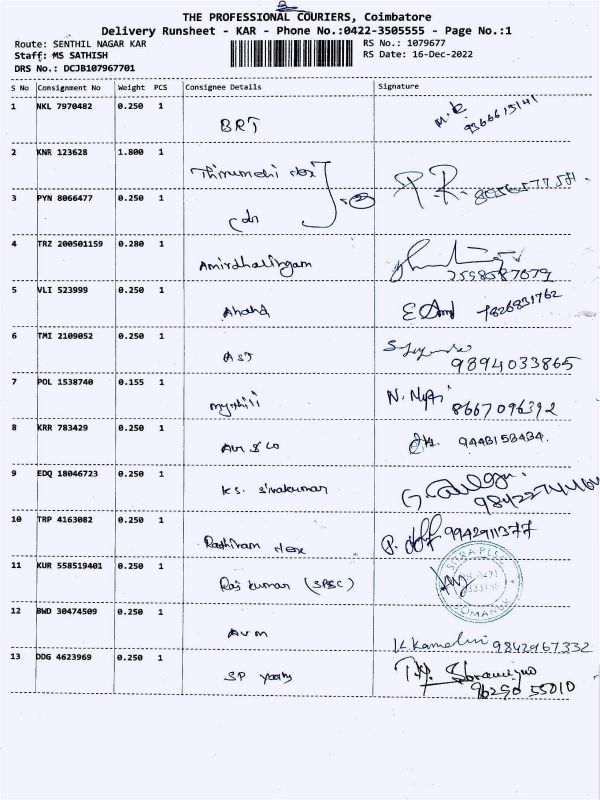 THE PROFESSIONAL COURIERS, Coimbatore
Delivery Runsheet - KAR - Phone No.:0422-3505555 - Page No.:1
Route: SENTHIL NAGAR KAR RS No.: 1079677
Staff: MS SATHISH RS Date: 16-Dec-2022
DRS No.: DCJB107967701
S No Consignment No Weight PCS Consignee Details Signature
1 NKL 7970482 0.250 1 BRT
2 KNR 123628 1.800 1
3 PYN 8066477 0.250 1
4 TRZ 200501159 0.280 1 Amirdhalingam
5 VLI 523999 0.250 1 Anand
6 TMI 2109052 0.250 1 AST 9894033865
7 POL 1538740 0.155 1 mythili 8667096392
8 KRR 783429 0.250 1 9443153434.
9 EDQ 18046723 0.250 1 K.S. Sivakumar
10 TRP 4163082 0.250 1 9942911377
11 KUR 558519401 0.250 1 Raj kumar (SPSC)
12 BWD 30474509 0.250 1 AVM K. Kamalini 9842967332
13 DDG 4623969 0.250 1 SP 96290 55010